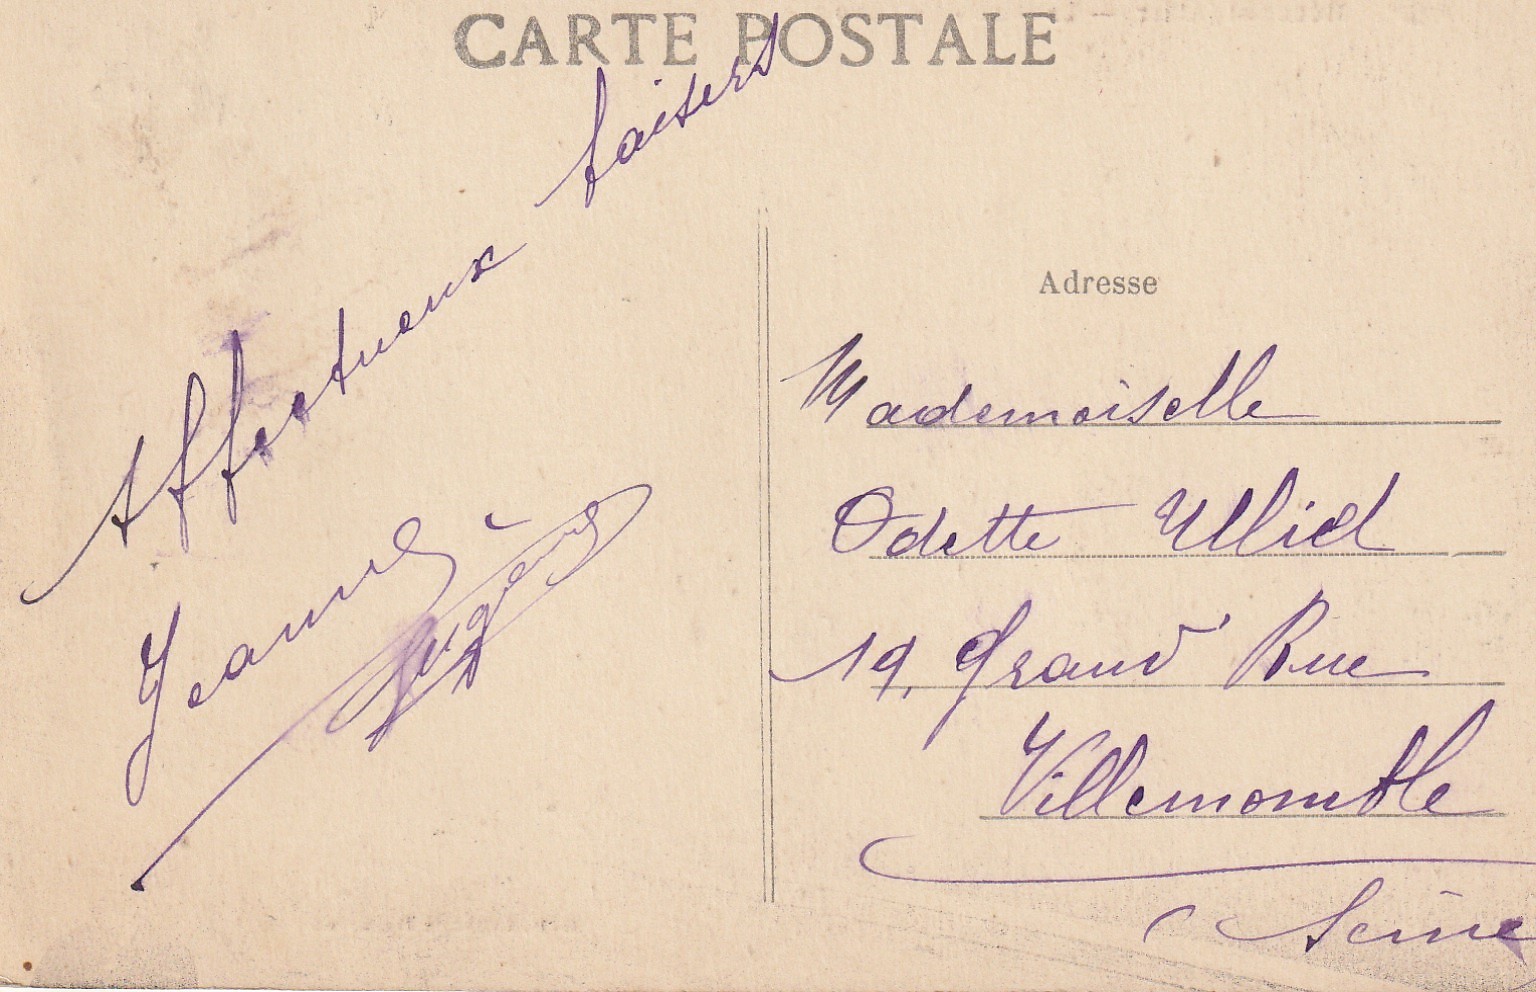 CARTE POSTALE
Affectueux baisers
Jeanne
Adresse
Mademoiselle
Odette Ulliel
19, Grand' Rue
Villemomble
Seine